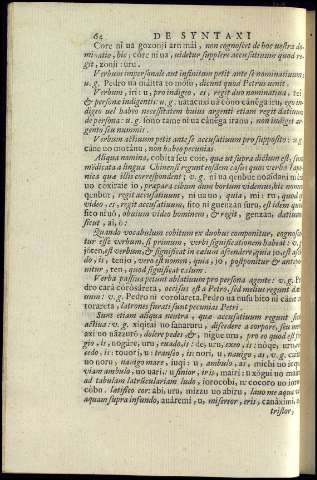 64 DE SYNTAXI
Core ni ua gozonji arn mai, non cognoscet de hoc uestra do-
minatio, hic, core ni ua, uidetur supplere accusatiuum quod re-
git, zonji: uru.
Verbum impersonale aut infinitum petit ante se nominatiuum:
u. g. Pedro ua maitta to mosu, dicunt quod Petrus uenit.
Verbum, iri: u, pro indigeo, es, regit duo nominatiua, rei
& personae indigentis: u. g. uatacuxi ua cono canega iru, ego in-
digeo uel habeo necessitatem huius argenti etiam regit datiuum
de persona: u. g. sono tame ni ua canega iranu, non indiget ar-
gento seu nummis.
Verbum actiuum petit ante se accusatiuum pro supposito: u. g.
cane uo motanu, non habeo pecunias
Aliqua nomina, cobita seu coie, quae ut supra dictum est, sunt
uocabula a lingua Chinensi regunt eosdem casus quos verba Iapo-
nica quae illis correspondent; u. g. ni ua qenbut no aideni ni
uo coxiraie io, praepara cibum dum hortum videmus, hic nomen
qenbut, regit accusatiuum, ni ua uo, quia, mi: ru, quod est
video, es, regit accusatiuum, fito ni guenzan suru, est idem quod
fito ni uo, obuium video hominem, & regit, genzan, datiuum
sicut, ai, ǒ:
Quando vocabulum cobitum ex duobus componitur, cognosci-
tur esse verbum, si primum, verbi significationem habeat: v. g.
joten, est verbum, & significat in caelum ascendere, quia jo, est ascen-
do, is, tenjo, vero est nomen, quia, jo, postponitur & antece-
nitur, ten, quod significat caelum.
Verba passiua petunt ablatiuum pro persona agente: v. g. Pe
dro cara corosareta, occisus est a Petro, sed melius regunt da
uum: v. g. Pedro ni corosareta. Pedro ua nusu bito ni cane uo
torareta, latrones furati sunt pecunias Petri.
Sunt etiam aliqua neutra, quae accusatiuum regunt sicut
actiua: v. g. xiqitai uo fanaruru, discedere a corpore, seu mori
axi uo uazzurǒ, dolere pedes &, nigue uru, pro eo quod est fu-
gio, is, nogare, uru, euado, is: de, uru, exeo, is: noqe, uru, re-
cedo, is: touori, u: transeo, is nori, u, nauigo, as, v. g. cai
uo noru, nauigo mare, iuqi: u, ambulo, as, michi uo iuqu
viam ambulo, uo uari, u finior, iris, mairi: u xogui uo mairu
ad tabulam latriculariam ludo, iorocobi, u: cocoro uo ioro
cǒbu. latifico cor: abi, uru, mizzu uo abiru, lauo me aqua vel
aquam supra infundo, auaremi, u, misereor, eris, canaximi, u
tristor,